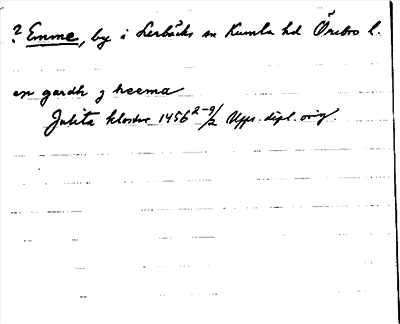 ? Emme, by i Lerbäcks sn Kumla hd Örebro l.
en gardh j heema
Julita kloster 1456 2-9/2 Upps. dipl. orig